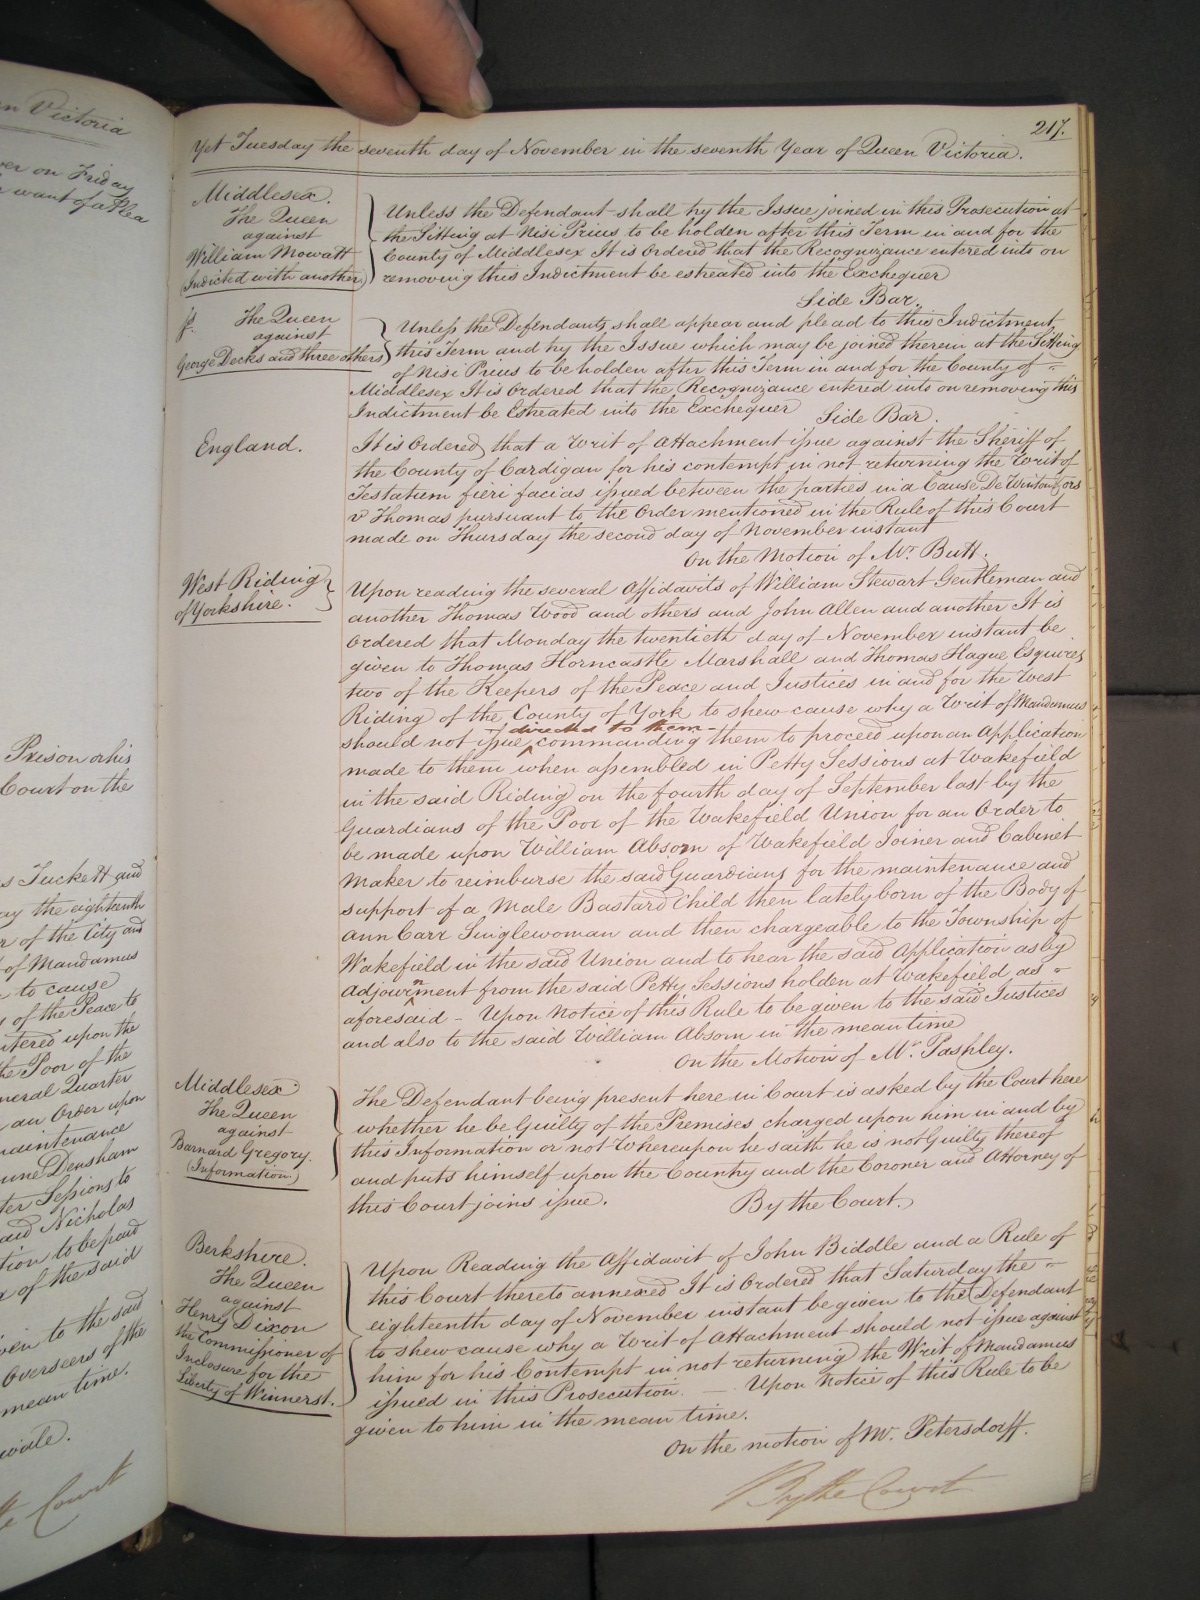 n Victoria
ver on Friday
want of a Plea
Prison or his
Court on the
s Tuckett and
ay the eighteenth
r of the City and
of Mandamus
to cause
of the Peace to
ntered upon the
the Poor of the
neral Quarter
an Order upon
maintenance
une Densham
ter Sessions to
said Nicholas
tion to be paid
of the said
ven to the said
Overseers of the
mean time.
e Court
217.
Yet Tuesday the seventh day of November in the seventh Year of Queen Victoria.
Middlesex.
The Queen
against
William Mowatt
(Indicted with another)
Unless the Defendant shall try the Issue joined in this Prosecution at
the Sitting at Nisi Prius to be holden after this Term in and for the
County of Middlesex It is Ordered that the Recognizance entered into on
removing this Indictment be estreated into the Exchequer
Side Bar.
The Queen
against
George Decks and three others
Unless the Defendants shall appear and plead to this Indictment
this Term and try the Issue which may be joined therein at the Sitting
of Nisi Prius to be holden after this Term in and for the County of
Middlesex It is Ordered that the Recognizance entered into on removing this
Indictment be Estreated into the Exchequer Side Bar.
England.
It is Ordered that a Writ of Attachment issue against the Sheriff of
the County of Cardigan for his contempt in not returning the Writ of
Testatum fieri facias issued between the parties in a Cause De Winton & ors
v Thomas pursuant to the Order mentioned in the Rule of this Court
made on Thursday the second day of November instant
On the Motion of Mr. Butt.
West Riding
of Yorkshire.
Upon reading the several Affidavits of William Stewart Gentleman and
another Thomas Wood and others and John Allen and another It is
Ordered that Monday the twentieth day of November instant be
given to Thomas Horncastle Marshall and Thomas Hague Esquires
two of the Keepers of the Peace and Justices in and for the West
Riding of the County of York to shew cause why a Writ of Mandamus
directed to them
should not issue commanding them to proceed upon an Application
made to them when assembled in Petty Sessions at Wakefield
in the said Riding on the fourth day of September last by the
Guardians of the Poor of the Wakefield Union for an Order to
be made upon William Absom of Wakefield Joiner and Cabinet
Maker to reimburse the said Guardians for the maintenance and
support of a Male Bastard Child then lately born of the Body of
Ann Carr Singlewoman and then chargeable to the Township of
Wakefield in the said Union and to hear the said Application as by
Adjournment from the said Petty Sessions holden at Wakefield as
aforesaid – Upon Notice of this Rule to be given to the said Justices
and also to the said William Absom in the mean time
On the Motion of Mr. Pashley.
Middlesex
The Queen
against
Barnard Gregory.
(Information)
The Defendant being present here in Court is asked by the Court here
whether he be Guilty of the Premises charged upon him in and by
this Information or not Whereupon he saith he is not Guilty thereof
and puts himself upon the Country and the Coroner and Attorney of
this Court joins issue. By the Court.
Berkshire.
The Queen
against
Henry Dixon
the Commissioner of
Inclosure for the
Liberty of Winnerst.
Upon Reading the Affidavit of John Biddle and a Rule of
this Court thereto annexed It is Ordered that Saturday the
eighteenth day of November instant be given to the Defendant
to shew cause why a Writ of Attachment should not issue against
him for his Contempt in not returning the Writ of Mandamus
issued in this Prosecution. – Upon Notice of this Rule to be
given to him in the mean time.
On the motion of Mr. Petersdorff.
By the Court